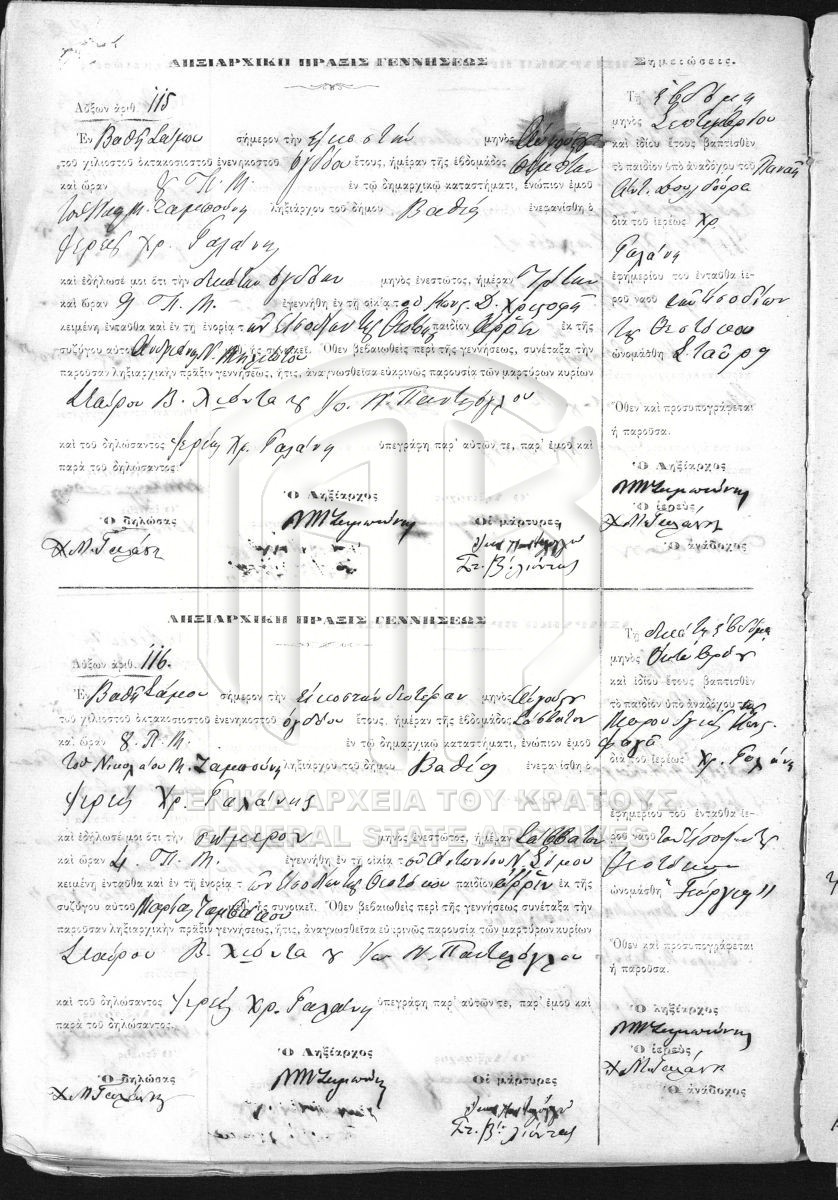 ΛΗΞΙΑΡΧΙΚΗ ΠΡΑΞΙΣ ΓΕΝΝΗΣΕΩΣ
Αὔξων ἀριθ. 115
Ἐν Βαθεῖ Σάμου σήμερον τὴν εἰκοστὴν μηνὸς Αὐγούστου
τοῦ χιλιοστοῦ ὀκτακοσιοστοῦ ἐνενηκοστοῦ ὀγδόου ἔτους, ἡμέραν τῆς ἑβδομάδος Πέμπτην
καὶ ὥραν 8 Π. Μ. ἐν τῷ δημαρχικῷ καταστήματι, ἐνώπιον ἐμοῦ
τοῦ Νικ. Μ. Ζαμπούνη ληξιάρχου τοῦ δήμου Βαθέος ἐνεφανίσθη ὁ
ἱερεὺς Χρ. Γαλάνης
καὶ ἐδήλωσέ μοι ὅτι τὴν δεκάτην ὀγδόην μηνὸς ἐνεστῶτος, ἡμέραν Τρίτην
καὶ ὥραν 9 Π. Μ. ἐγεννήθη ἐν τῇ οἰκίᾳ τοῦ Κωνσ. Δ.
κειμένῃ ἐνταῦθα καὶ ἐν τῇ ἐνορίᾳ τῶν Εἰσοδίων τῆς Θεοτόκου παιδίον ἄρρεν ἐκ τῆς
συζύγου αὐτοῦ Ν. μεθ' ἧς συνοικεῖ. Ὅθεν βεβαιωθεὶς περὶ τῆς γεννήσεως, συνέταξα τὴν
παροῦσαν ληξιαρχικὴν πρᾶξιν γεννήσεως, ἥτις, ἀναγνωσθεῖσα εὐκρινῶς παρουσίᾳ τῶν μαρτύρων κυρίων
Σταύρου Β. Λιόντα καὶ Ἰω. Ν. Παντελόγλου
καὶ τοῦ δηλώσαντος ἱερέως Χρ. Γαλάνη ὑπεγράφη παρ' αὐτῶν τε, παρ' ἐμοῦ καὶ
παρὰ τοῦ δηλώσαντος.
Ὁ Ληξίαρχος
Ὁ δηλώσας
ΝΜ Ζαμπούνης
Οἱ μάρτυρες
Χ. Μ. Γαλάνης
Στ. Β. Λιόντας
Σημειώσεις.
Τῇ ἑβδόμῃ
μηνὸς Σεπτεμβρίου
καὶ ἰδίου ἔτους βαπτισθὲν
τὸ παιδίον ὑπὸ ἀναδόχου τοῦ
διὰ τοῦ ἱερέως Χρ.
Γαλάνη
ἐφημερίου τοῦ ἐνταῦθα ἱε-
ροῦ ναοῦ τῶν Εἰσοδίων
τῆς Θεοτόκου
ὠνομάσθη Σταῦρος
Ὅθεν καὶ προσυπογράφεται
ἡ παροῦσα.
Ὁ Ληξίαρχος
ΝΜ Ζαμπούνης
Ὁ ἱερεὺς
Χ. Μ. Γαλάνης
Ὁ ἀνάδοχος
ΛΗΞΙΑΡΧΙΚΗ ΠΡΑΞΙΣ ΓΕΝΝΗΣΕΩΣ
Αὔξων ἀριθ. 116.
Ἐν Βαθεῖ Σάμου σήμερον τὴν εἰκοστὴν δευτέραν μηνὸς Αὐγούστου
τοῦ χιλιοστοῦ ὀκτακοσιοστοῦ ἐνενηκοστοῦ ὀγδόου ἔτους, ἡμέραν τῆς ἑβδομάδος Σάββατον
καὶ ὥραν 8 Π. Μ. ἐν τῷ δημαρχικῷ καταστήματι, ἐνώπιον ἐμοῦ
τοῦ Νικολάου Μ. Ζαμπούνη ληξιάρχου τοῦ δήμου Βαθέος ἐνεφανίσθη ὁ
ἱερεὺς Χρ. Γαλάνης
καὶ ἐδήλωσέ μοι ὅτι τὴν σήμερον μηνὸς ἐνεστῶτος, ἡμέραν Σάββατον
καὶ ὥραν 4 Π. Μ. ἐγεννήθη ἐν τῇ οἰκίᾳ τοῦ Ἀντωνίου Ν. Σάμου
κειμένῃ ἐνταῦθα καὶ ἐν τῇ ἐνορίᾳ τῶν Εἰσοδίων τῆς Θεοτόκου παιδίον ἄρρεν ἐκ τῆς
συζύγου αὐτοῦ Μαρίας μεθ' ἧς συνοικεῖ. Ὅθεν βεβαιωθεὶς περὶ τῆς γεννήσεως συνέταξα τὴν
παροῦσαν ληξιαρχικὴν πρᾶξιν γεννήσεως, ἥτις, ἀναγνωσθεῖσα εὐκρινῶς παρουσίᾳ τῶν μαρτύρων κυρίων
Σταύρου Β. Λιόντα καὶ Ἰω. Ν. Παντελόγλου
καὶ τοῦ δηλώσαντος ἱερέως Χρ. Γαλάνη ὑπεγράφη παρ' αὐτῶν τε, παρ' ἐμοῦ καὶ
παρὰ τοῦ δηλώσαντος.
Ὁ Ληξίαρχος
Ὁ δηλώσας
ΝΜ Ζαμπούνης
Οἱ μάρτυρες
Χ. Μ. Γαλάνης
Στ. Β. Λιόντας
Τῇ δεκάτῃ ἑβδόμῃ
μηνὸς Ὀκτωβρίου
καὶ ἰδίου ἔτους βαπτισθὲν
τὸ παιδίον ὑπὸ ἀναδόχου τῆς
διὰ τοῦ ἱερέως Χρ. Γαλάνη
ἐφημερίου τοῦ ἐνταῦθα ἱε-
ροῦ ναοῦ τῶν Εἰσοδίων τῆς
Θεοτόκου
ὠνομάσθη "Γεώργιος"
Ὅθεν καὶ προσυπογράφεται
ἡ παροῦσα.
Ὁ ληξίαρχος
ΝΜ Ζαμπούνης
Ὁ ἱερεὺς
Χ. Μ. Γαλάνης
Ὁ ἀνάδοχος
ΓΕΝΙΚΑ ΑΡΧΕΙΑ ΤΟΥ ΚΡΑΤΟΥΣ
GENERAL STATE ARCHIVES